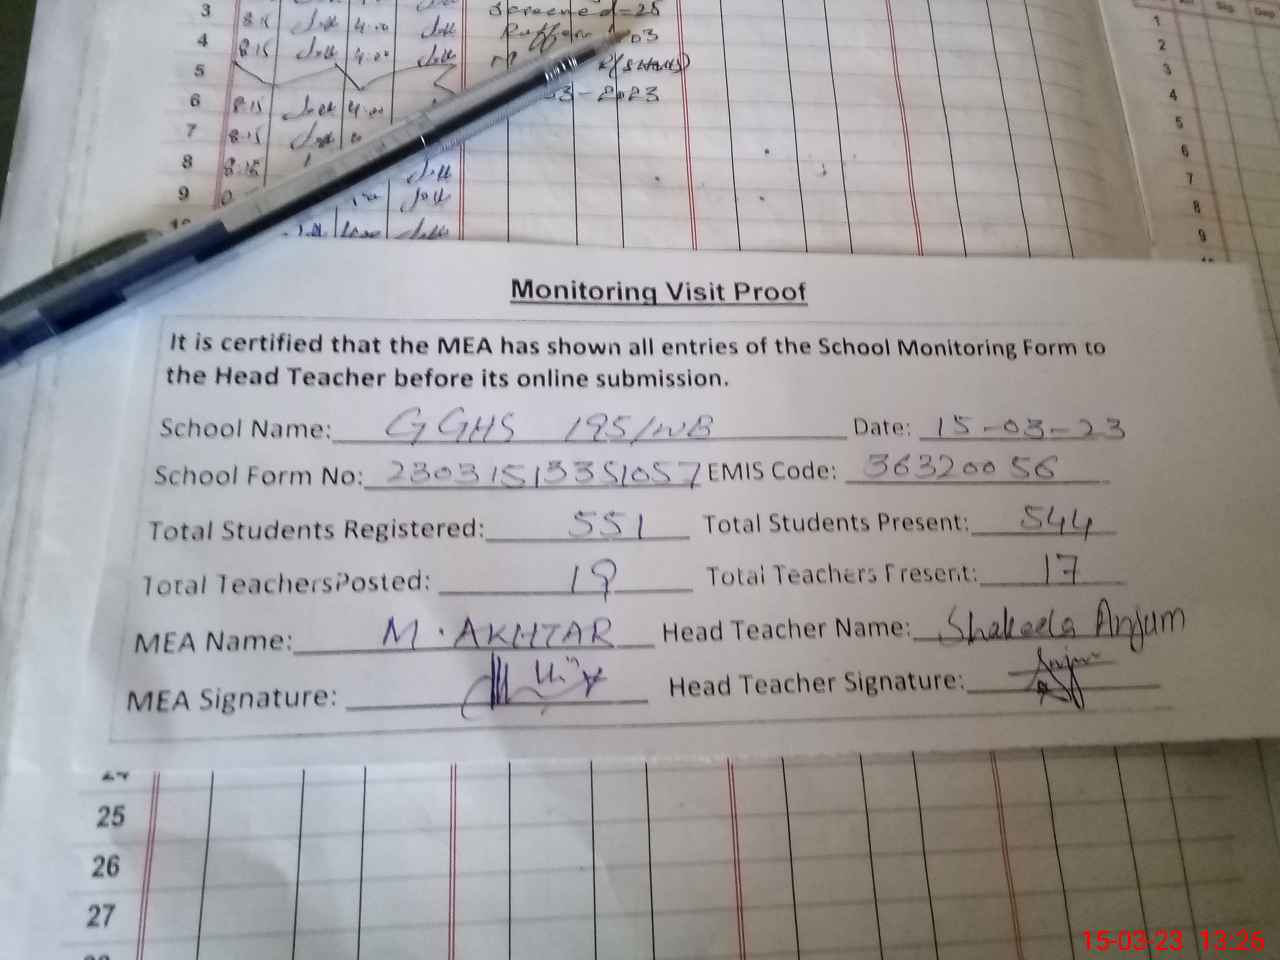 3 8:15 4:00 Screened-25
4 8:15 4:00 03
5
6 8:15 4:00 03-2023
7 8:15
8 8:15
9
10
1
2
3
4
5
6
7
8
9
Monitoring Visit Proof
It is certified that the MEA has shown all entries of the School Monitoring Form to
the Head Teacher before its online submission.
School Name: GGHS 195/WB Date: 15-03-23
School Form No: 23031513351057 EMIS Code: 36320056
Total Students Registered: 551 Total Students Present: 544
Total TeachersPosted: 19 Total Teachers Present: 17
MEA Name: M. AKHTAR Head Teacher Name: Shakeela Anjum
MEA Signature: Head Teacher Signature:
24
25
26
27
15-03-23 13:26